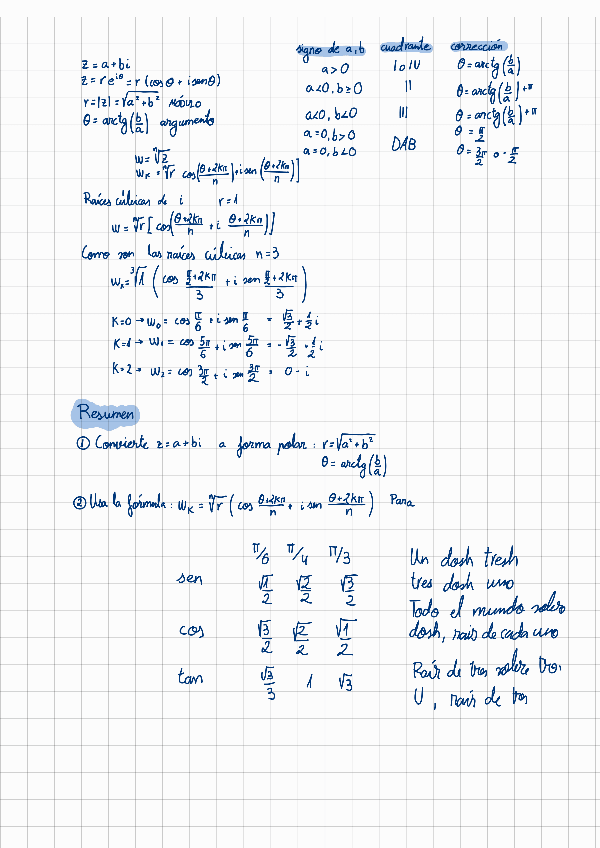 signo de a,b cuadrante corrección
z = a + bi
z = r e^{iθ} = r (cos θ + i sen θ)
r = |z| = √(a² + b²) MÓDULO
θ = arctg(b/a) argumento
a > 0 I o IV θ = arctg(b/a)
a < 0, b ≥ 0 II θ = arctg(b/a) + π
a < 0, b < 0 III θ = arctg(b/a) + π
a = 0, b > 0 θ = π/2
a = 0, b < 0 DAB θ = 3π/2 o -π/2
w = ⁿ√z
w_K = ⁿ√r cos(θ+2Kπ/n) + i sen(θ+2Kπ/n)]
Raíces cúbicas de i r = 1
w = ⁿ√r [cos(θ+2Kπ/n + i θ+2Kπ/n)]
Como son las raíces cúbicas n = 3
w_K = ³√1 (cos (π/2+2Kπ)/3 + i sen (π/2+2Kπ)/3)
K=0 → w₀ = cos π/6 + i sen π/6 = √3/2 + 1/2 i
K=1 → w₁ = cos 5π/6 + i sen 5π/6 = -√3/2 + 1/2 i
K=2 → w₂ = cos 3π/2 + i sen 3π/2 = 0 - i
Resumen
① Convierte z = a + bi a forma polar : r = √(a² + b²)
θ = arctg(b/a)
② Usa la fórmula : w_K = ⁿ√r (cos θ+2Kπ/n + i sen θ+2Kπ/n) Para
π/6 π/4 π/3
sen √1/2 √2/2 √3/2
cos √3/2 √2/2 √1/2
tan √3/3 1 √3
Un dosh tresh
tres dosh uno
Todo el mundo sobre
dosh, raís de cada uno
Raís de tres sobre tres
U, raís de tres